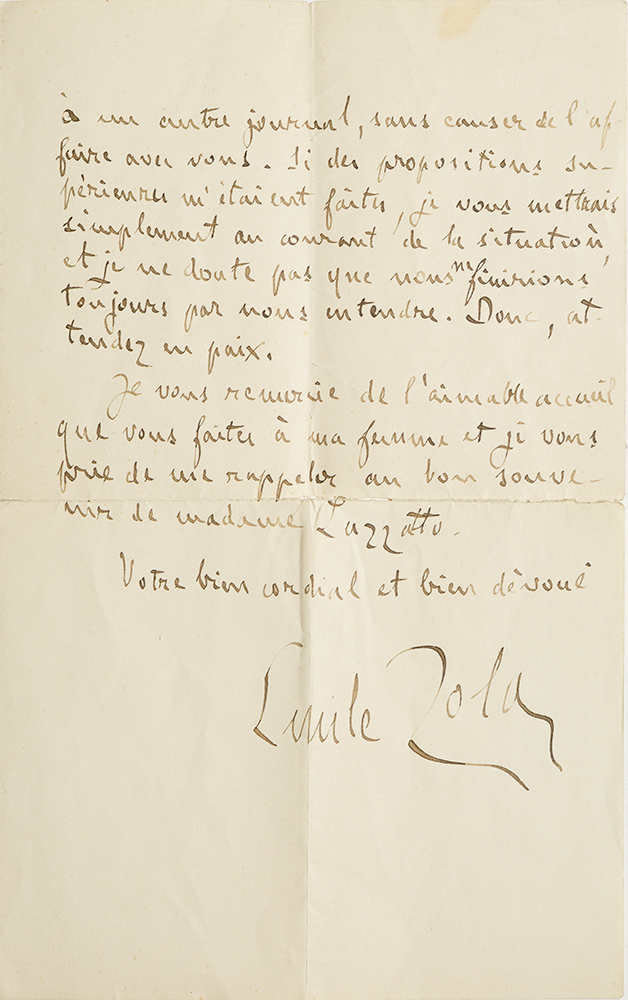 à un autre journal, sans causer de l'af-
faire avec vous. Si des propositions su-
périeures m'étaient faites, je vous mettrais
simplement au courant de la situation,
et je ne doute pas que nous ne finirions
toujours par nous entendre. Donc, at-
tendez en paix.
Je vous remercie de l'aimable accueil
que vous faites à ma femme et je vous
prie de me rappeler au bon souve-
nir de madame Luzzatto.
Votre bien cordial et bien dévoué
Emile Zola